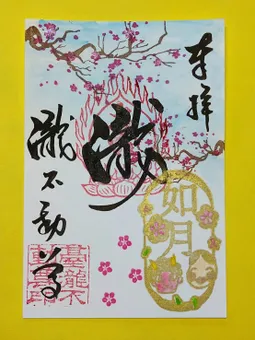 奉拝
瀧
如月
瀧不動尊